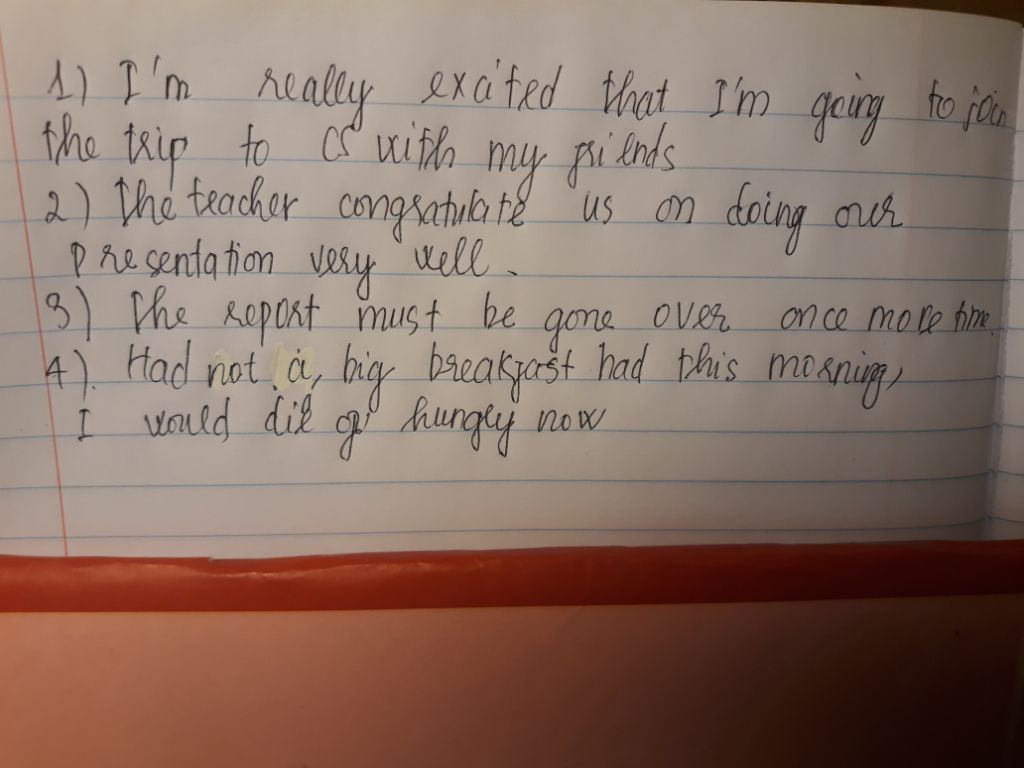 1) I'm really excited that I'm going to join
the trip to CS with my friends
2) The teacher congratulate us on doing our
presentation very well.
3) The report must be gone over once more time.
4). Had not a, big breakfast had this morning,
I would die of hungry now